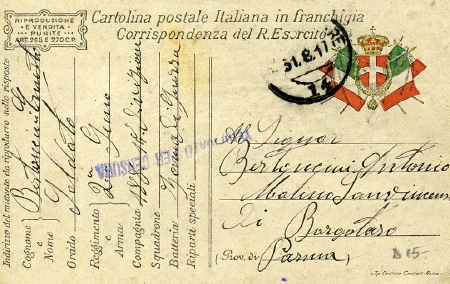 RIPRODUZIONE
E VENDITA
PUNITE
ART. 268 E 270 C.P.
Cartolina postale Italiana in franchigia
Corrispondenza del R. Esercito
31.8.17
Indirizzo del mittente da riprodurre nelle risposte
Cognome Bertoncini
e
Nome
Grado Soldato
Reggimento 2º Genio
e
Arma
Compagnia
Squadrone Zona di Guerra
Batteria
Riparti speciali
PER CENSURA
Al Signor
Bertoncini Antonio
Molino Sanvincenzo
di Borgotaro
(Prov. di) Parma
B 15